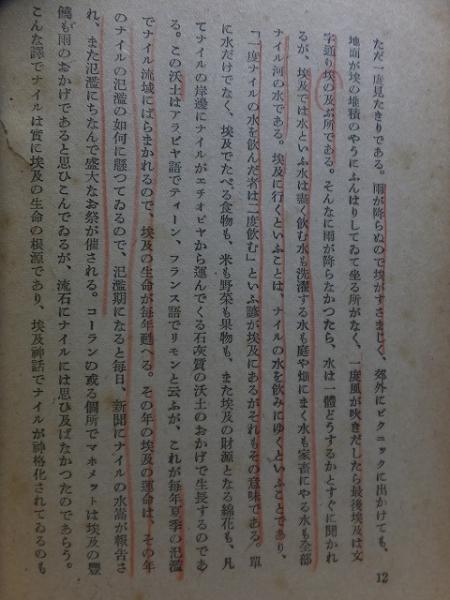 ただ一度見たきりである。雨が降らぬので埃がすさまじく、郊外にピクニックに出かけても、
地面が埃の堆積のやうにふんはりしてゐて坐る所がなく、一度風が吹きだしたら最後埃及は文
字通り埃の及ぶ所である。そんなに雨が降らなかつたら、水は一體どうするかとすぐに聞かれ
るが、埃及では水といふ水は盡く飲む水も洗濯する水も庭や畑にまく水も家畜にやる水も全部
ナイル河の水である。埃及に行くといふことは、ナイルの水を飲みにゆくといふことであり、
「一度ナイルの水を飲んだ者は二度飲む」といふ諺が埃及にあるがそれもその意味である。單
に水だけでなく、埃及でたべる食物も、米も野菜も果物も、また埃及の財源となる綿花も、凡
てナイルの岸邊にナイルがエチオピヤから運んでくる石灰質の沃土のおかげで生長するのであ
る。この沃土はアラビヤ語でティーン、フランス語でリモンと云ふが、これが毎年夏季の氾濫
でナイル流域にばらまかれるので、埃及の生命が毎年甦へる。その年の埃及の運命は、その年
のナイルの氾濫の如何に懸つてゐるので、氾濫期になると毎日、新聞にナイルの水嵩が報告さ
れ、また氾濫にちなんで盛大なお祭が催される。コーランの或る個所でマホメットは埃及の豐
饒も雨のおかげであると思ひこんでゐるが、流石にナイルには思ひ及ばなかつたのであらう。
こんな譯でナイルは實に埃及の生命の根源であり、埃及神話でナイルが神格化されてゐるのも
12